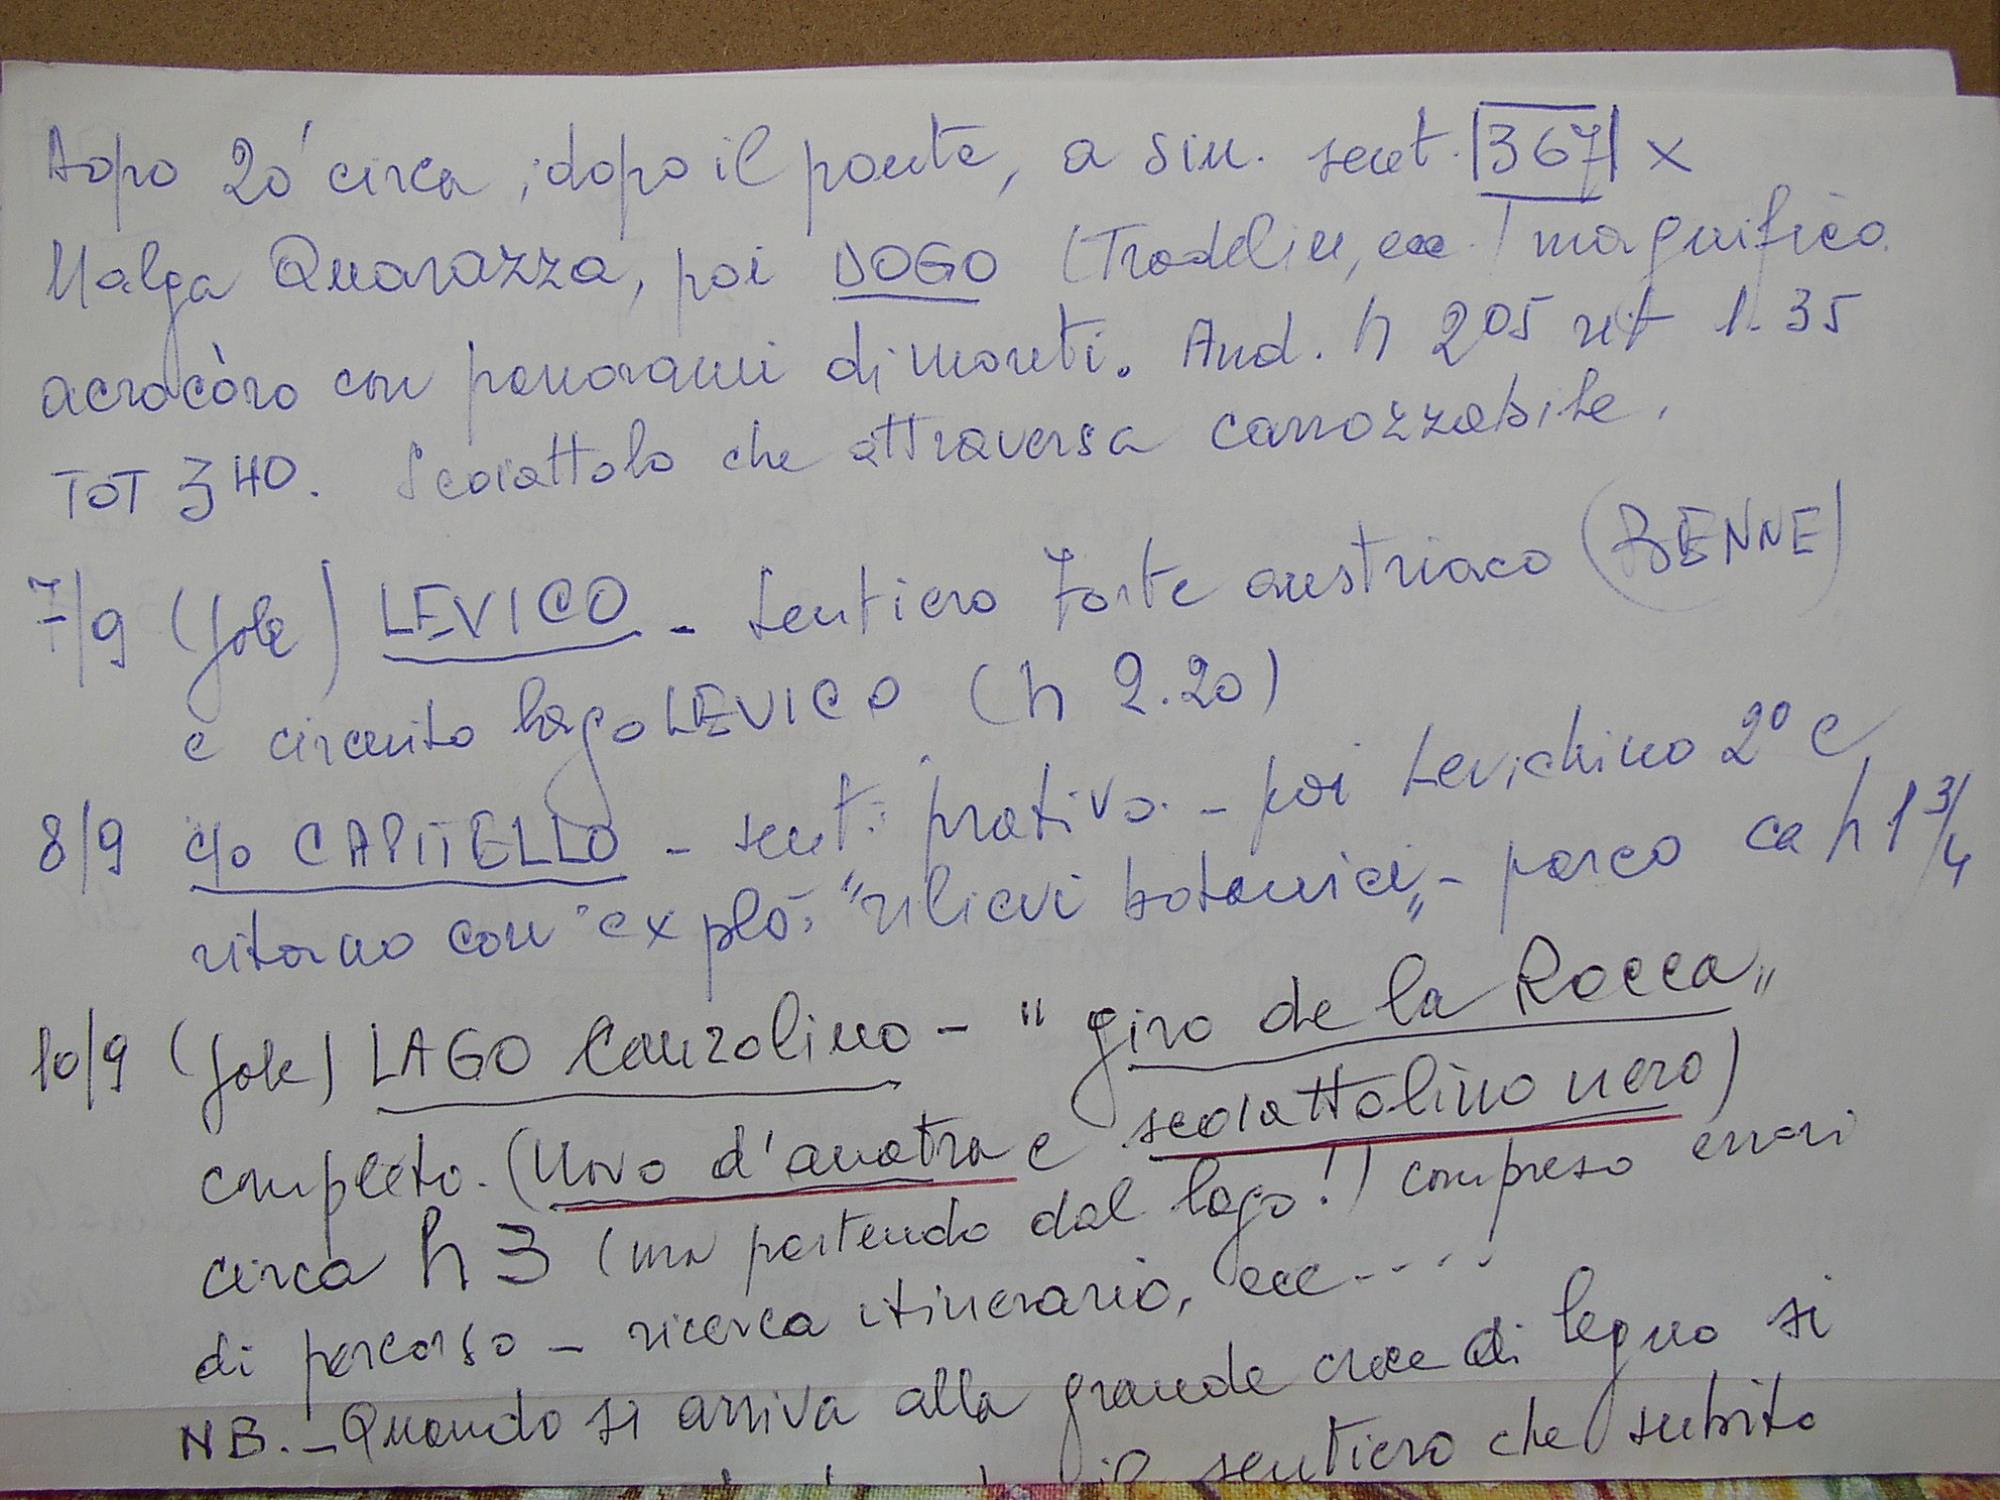 dopo 20' circa, dopo il ponte, a sin. sent. |367| x
Malga Quarazza, poi DOGO ( magnifico
acrocòro con panorami di monti. And. h 2 05 rit 1.35
TOT 3 40. Scoiattolo che attraversa carrozzabile.
7/9 (Jole) LEVICO - Sentiero Forte austriaco (BENNE)
e circuito lago LEVICO (h 2.20)
8/9 c/o CAPITELLO - sent. prativo. - poi Levichino 2° e
ritorno con explò. "rilievi botanici" - parco ca h 1 3/4
10/9 (Jole) LAGO Canzolino - "giro de la Rocca"
completo. (Uovo d'anatra e scoiattolino nero)
circa h 3 (ma partendo dal lago!) compreso errori
di percorso - ricerca itinerario, ecc.....
NB. - Quando si arriva alla grande croce di legno si
il sentiero che subito